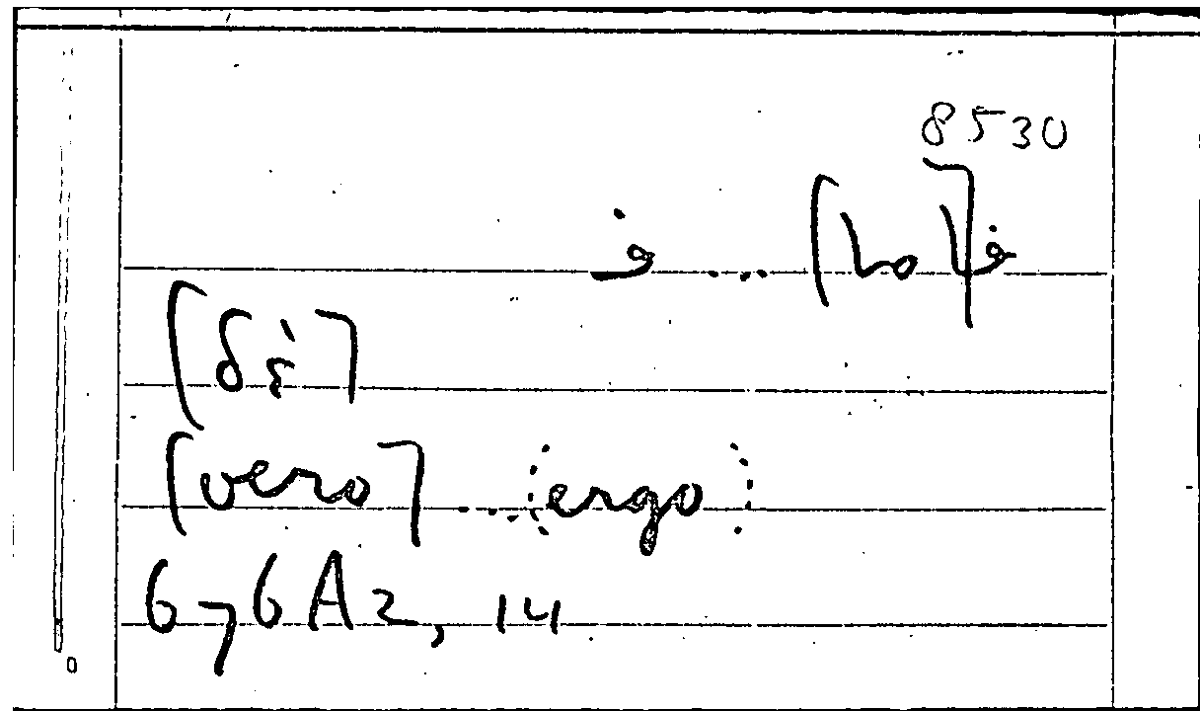 8530
ف[اما] ... ف
[δέ]
[vero] ... (ergo)
676A2, 14